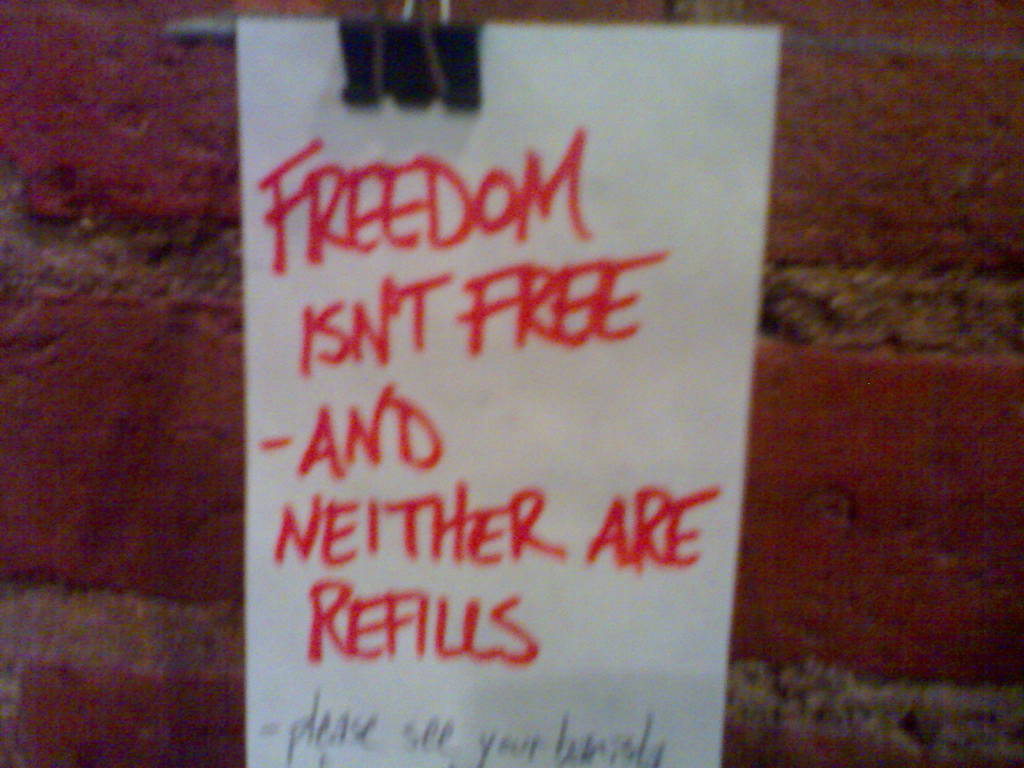 FREEDOM
ISN'T FREE
-AND
NEITHER ARE
REFILLS
- please see your